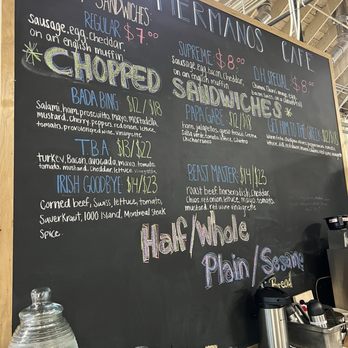 SANDWICHES
HERMANOS CAFE
REGULAR $7.00
sausage, egg, cheddar,
on an english muffin
SUPREME $8.00
sausage, egg, bacon, cheddar
on an english muffin
D.H. SPECIAL $8.00
*CHOPPED
SANDWICHES*
BADA BING $12/$18
Salami, ham, prosciutto, Mayo, mozzarella,
mustard, Cherry peppers, red onion, lettuce,
tomato, provolone, red wine, vinaigrette
PAPA GABE $12/$18
ham, jalapeños,
Salsa verde, tomato,
Chicharrones
T.B.A $13/$22
turkey, Bacon, avocado, mayo, tomato,
mustard, Cheddar, lettuce
BEAST MASTER $14/$23
roast beef, horseradish, Cheddar,
Chips, red onion, lettuce, mayo, tomato,
mustard, red wine vinaigrette
IRISH GOODBYE $14/$23
Corned beef, Swiss, lettuce, tomato,
Sauerkraut, 1000 Island, Montreal Steak
Spice.
Half/Whole
Plain/Sesame
Bread